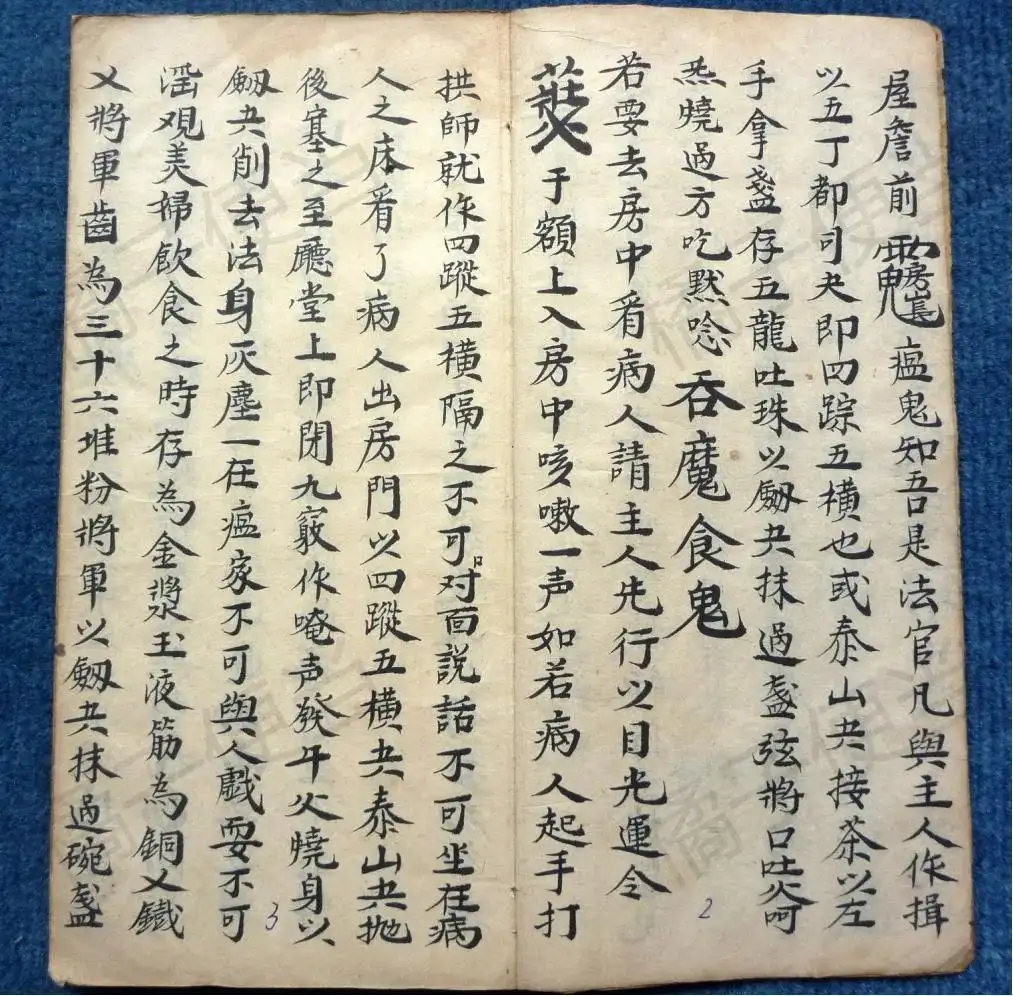 屋詹前瘟鬼知吾是法官凡與主人作揖
以五丁都司夬即四踪五横也或泰山夬接茶以左
手拿盞存五龍吐珠以劔夬抹過盞弦將口吐火呵
炁燒過方吃黙唸吞魔食鬼
若要去房中看病人請主人先行以目光運令
于額上入房中咳嗽一声如若病人起手打
拱師就作四蹤五横隔之不可对面説話不可坐在病
人之床看了病人出房門以四蹤五横夬泰山夬抛
後塞之至廳堂上即閉九竅作唵声發午火燒身以
劔夬削去法身灰塵一在瘟家不可與人戲耍不可
淫观美婦飲食之時存為金漿玉液筋為銅乂鐵
乂將軍齒為三十六堆粉將軍以劔夬抹過碗盞
2
3